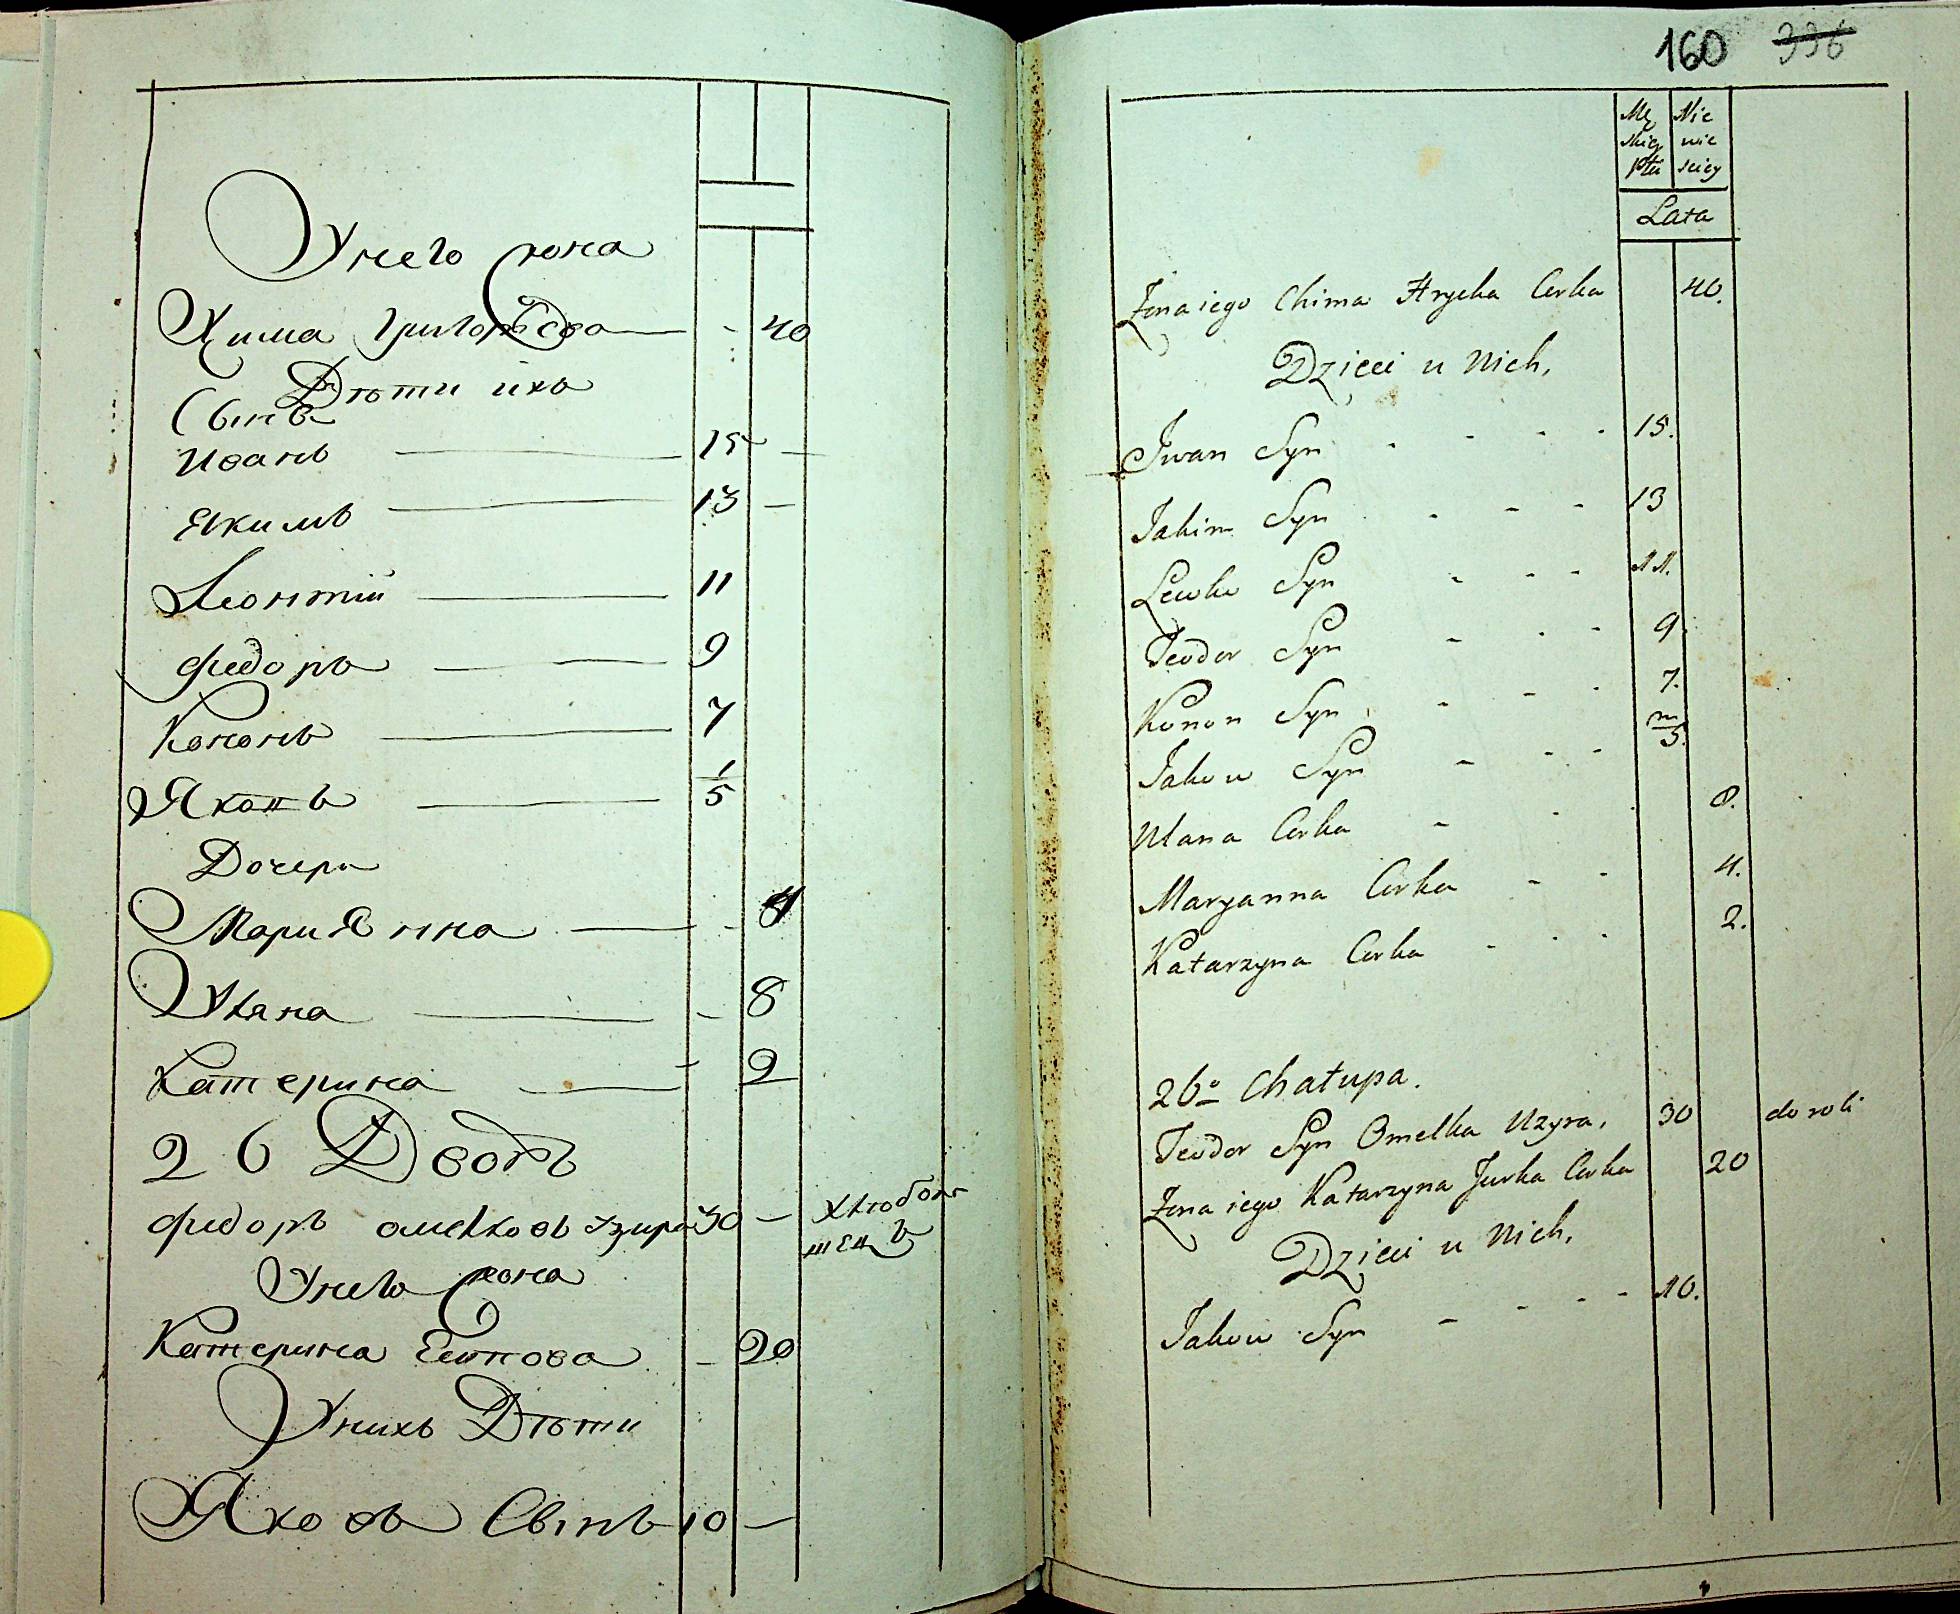 У него жона
Хима Григорьева — - 40
Дѣти ихъ
Сынъ
Иванъ — 15 —
Якимъ — 13 —
Леонтій — 11
Федоръ — 9
Кононъ — 7
Яковъ — 1/5
Дочери
Мариянна — - 4
Уляна — - 8
Катерина — 2
26 Дворъ
Федоръ Омелковъ Узира 30 — хлѣбопа
шецъ
У него жона
Катерина Есипова - 20
У нихъ Дѣти
Яковъ Сынъ 10 —
160 336
Mę Nie
skiey wie
Płci sciey
Lata
Zona iego Chima Hrycka Corka 40.
Dzieci u Nich,
Iwan Syn - - - - 15.
Jakim Syn - - - 13
Lewko Syn - - - 11.
Teodor Syn - - - 9.
Konon Syn - - - 7.
Jakow Syn - - - m/5.
Ulana Corka - - 8.
Maryanna Corka - - 4.
Katarzyna Corka - - - 2.
26o Chałupa.
Teodor Syn Omelka Uzyra, 30 do roli
Zona iego Katarzyna Jurka Corka 20
Dzieci u Nich,
Jakow Syn - - - - 10.